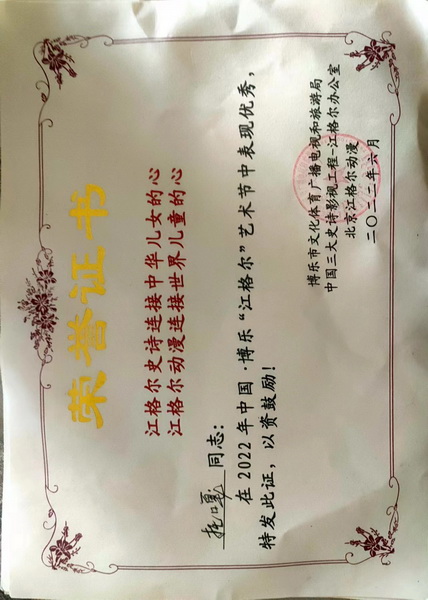 荣誉证书
江格尔史诗连接中华儿女的心
江格尔动漫连接世界儿童的心
同志：
在2022年中国·博乐“江格尔”艺术节中表现优秀，
特发此证，以资鼓励！
博乐市文化体育广播电视和旅游局
中国三大史诗影视工程-江格尔办公室
北京江格尔动漫
二〇二二年六月